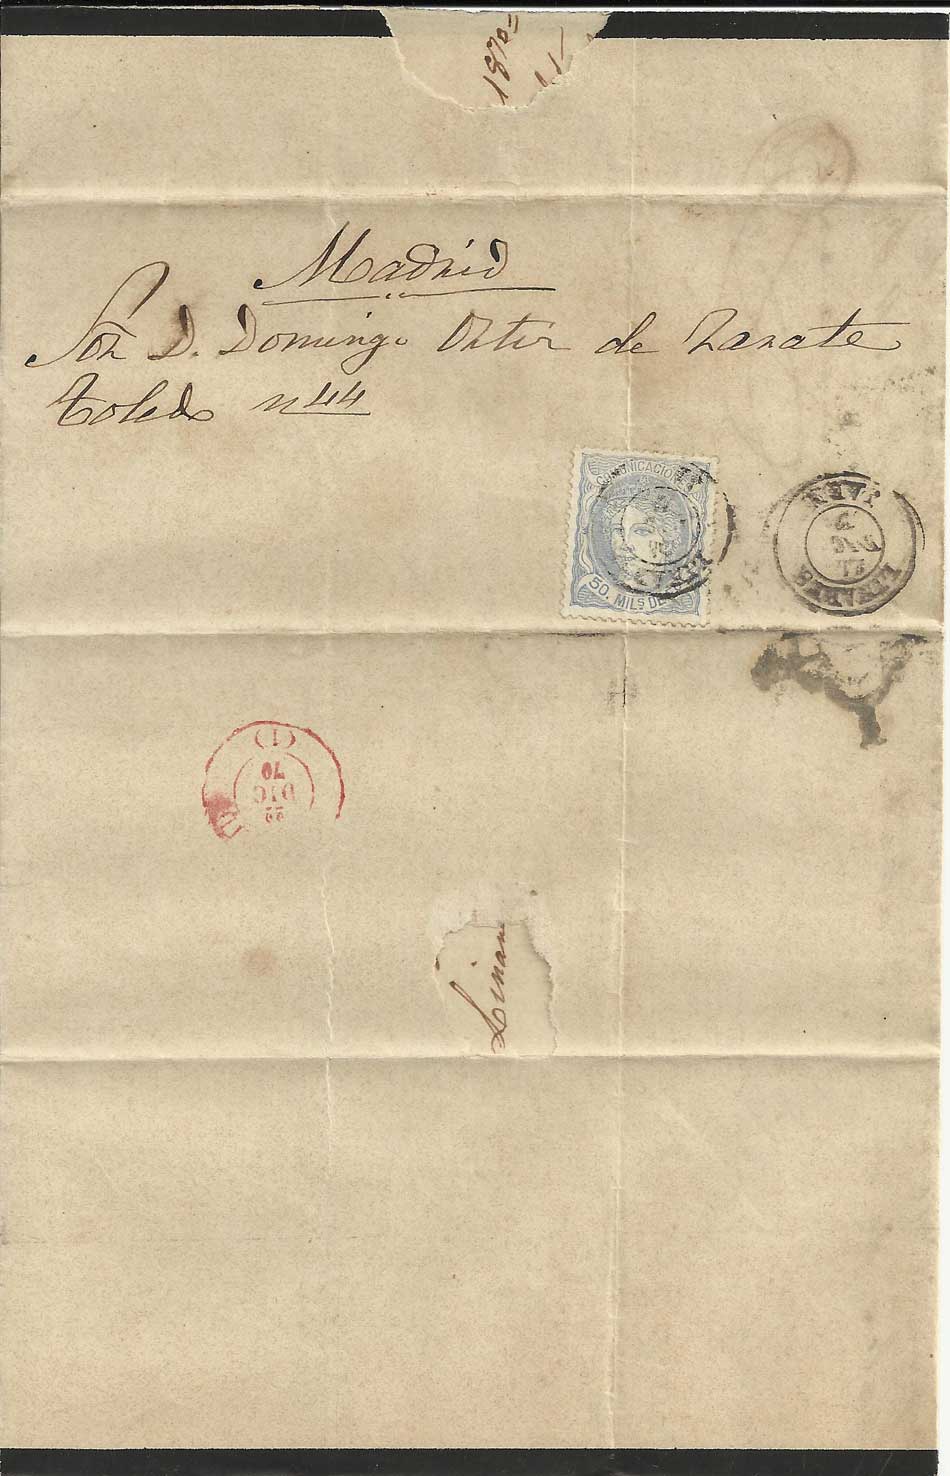 1870=
Madrid
Sor D. Domingo Ortiz de Zarate
Toledo n 44
COMUNICACIONES
50. MILS DE
JAEN
LINARES
(1)
70
DIC
22
Linare